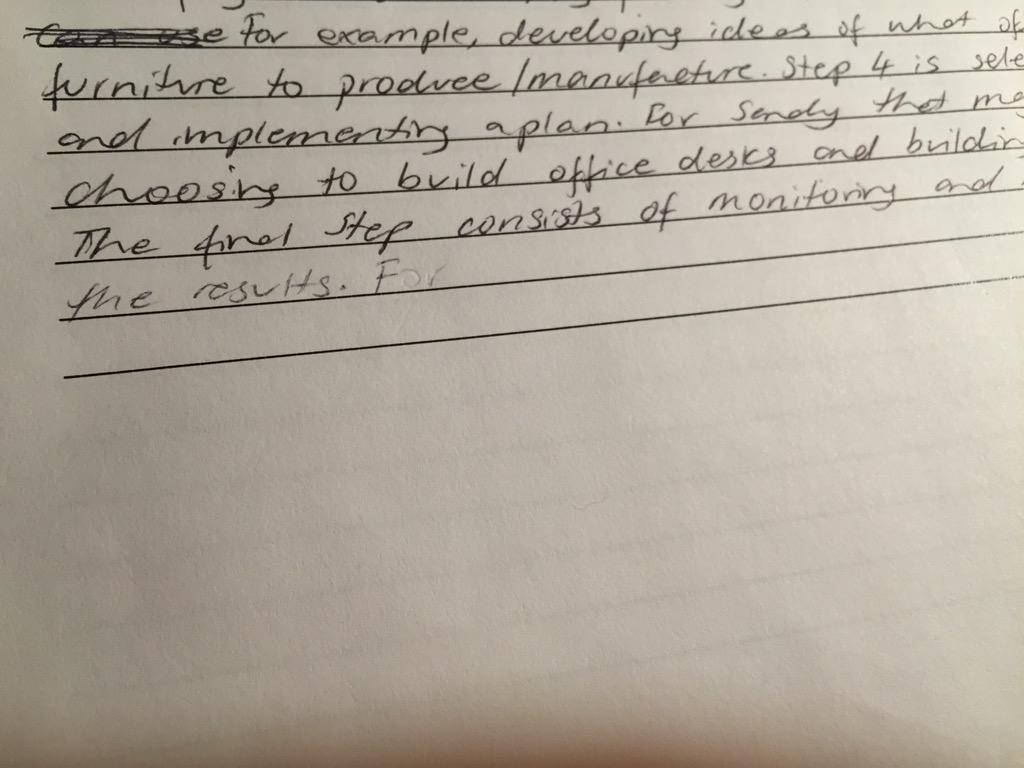 For example, developing ideas of what of
furniture to produce/manufacture. Step 4 is sele
and implementing a plan. For Sandy that
choosing to build office desks and buildin
The final step consists of monitoring and
the results. For